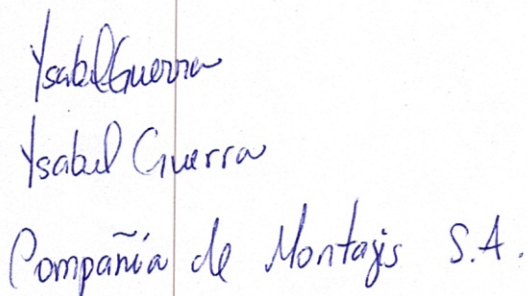 Ysabel Guerra
Ysabel Guerra
Compañía de Montajes S.A.